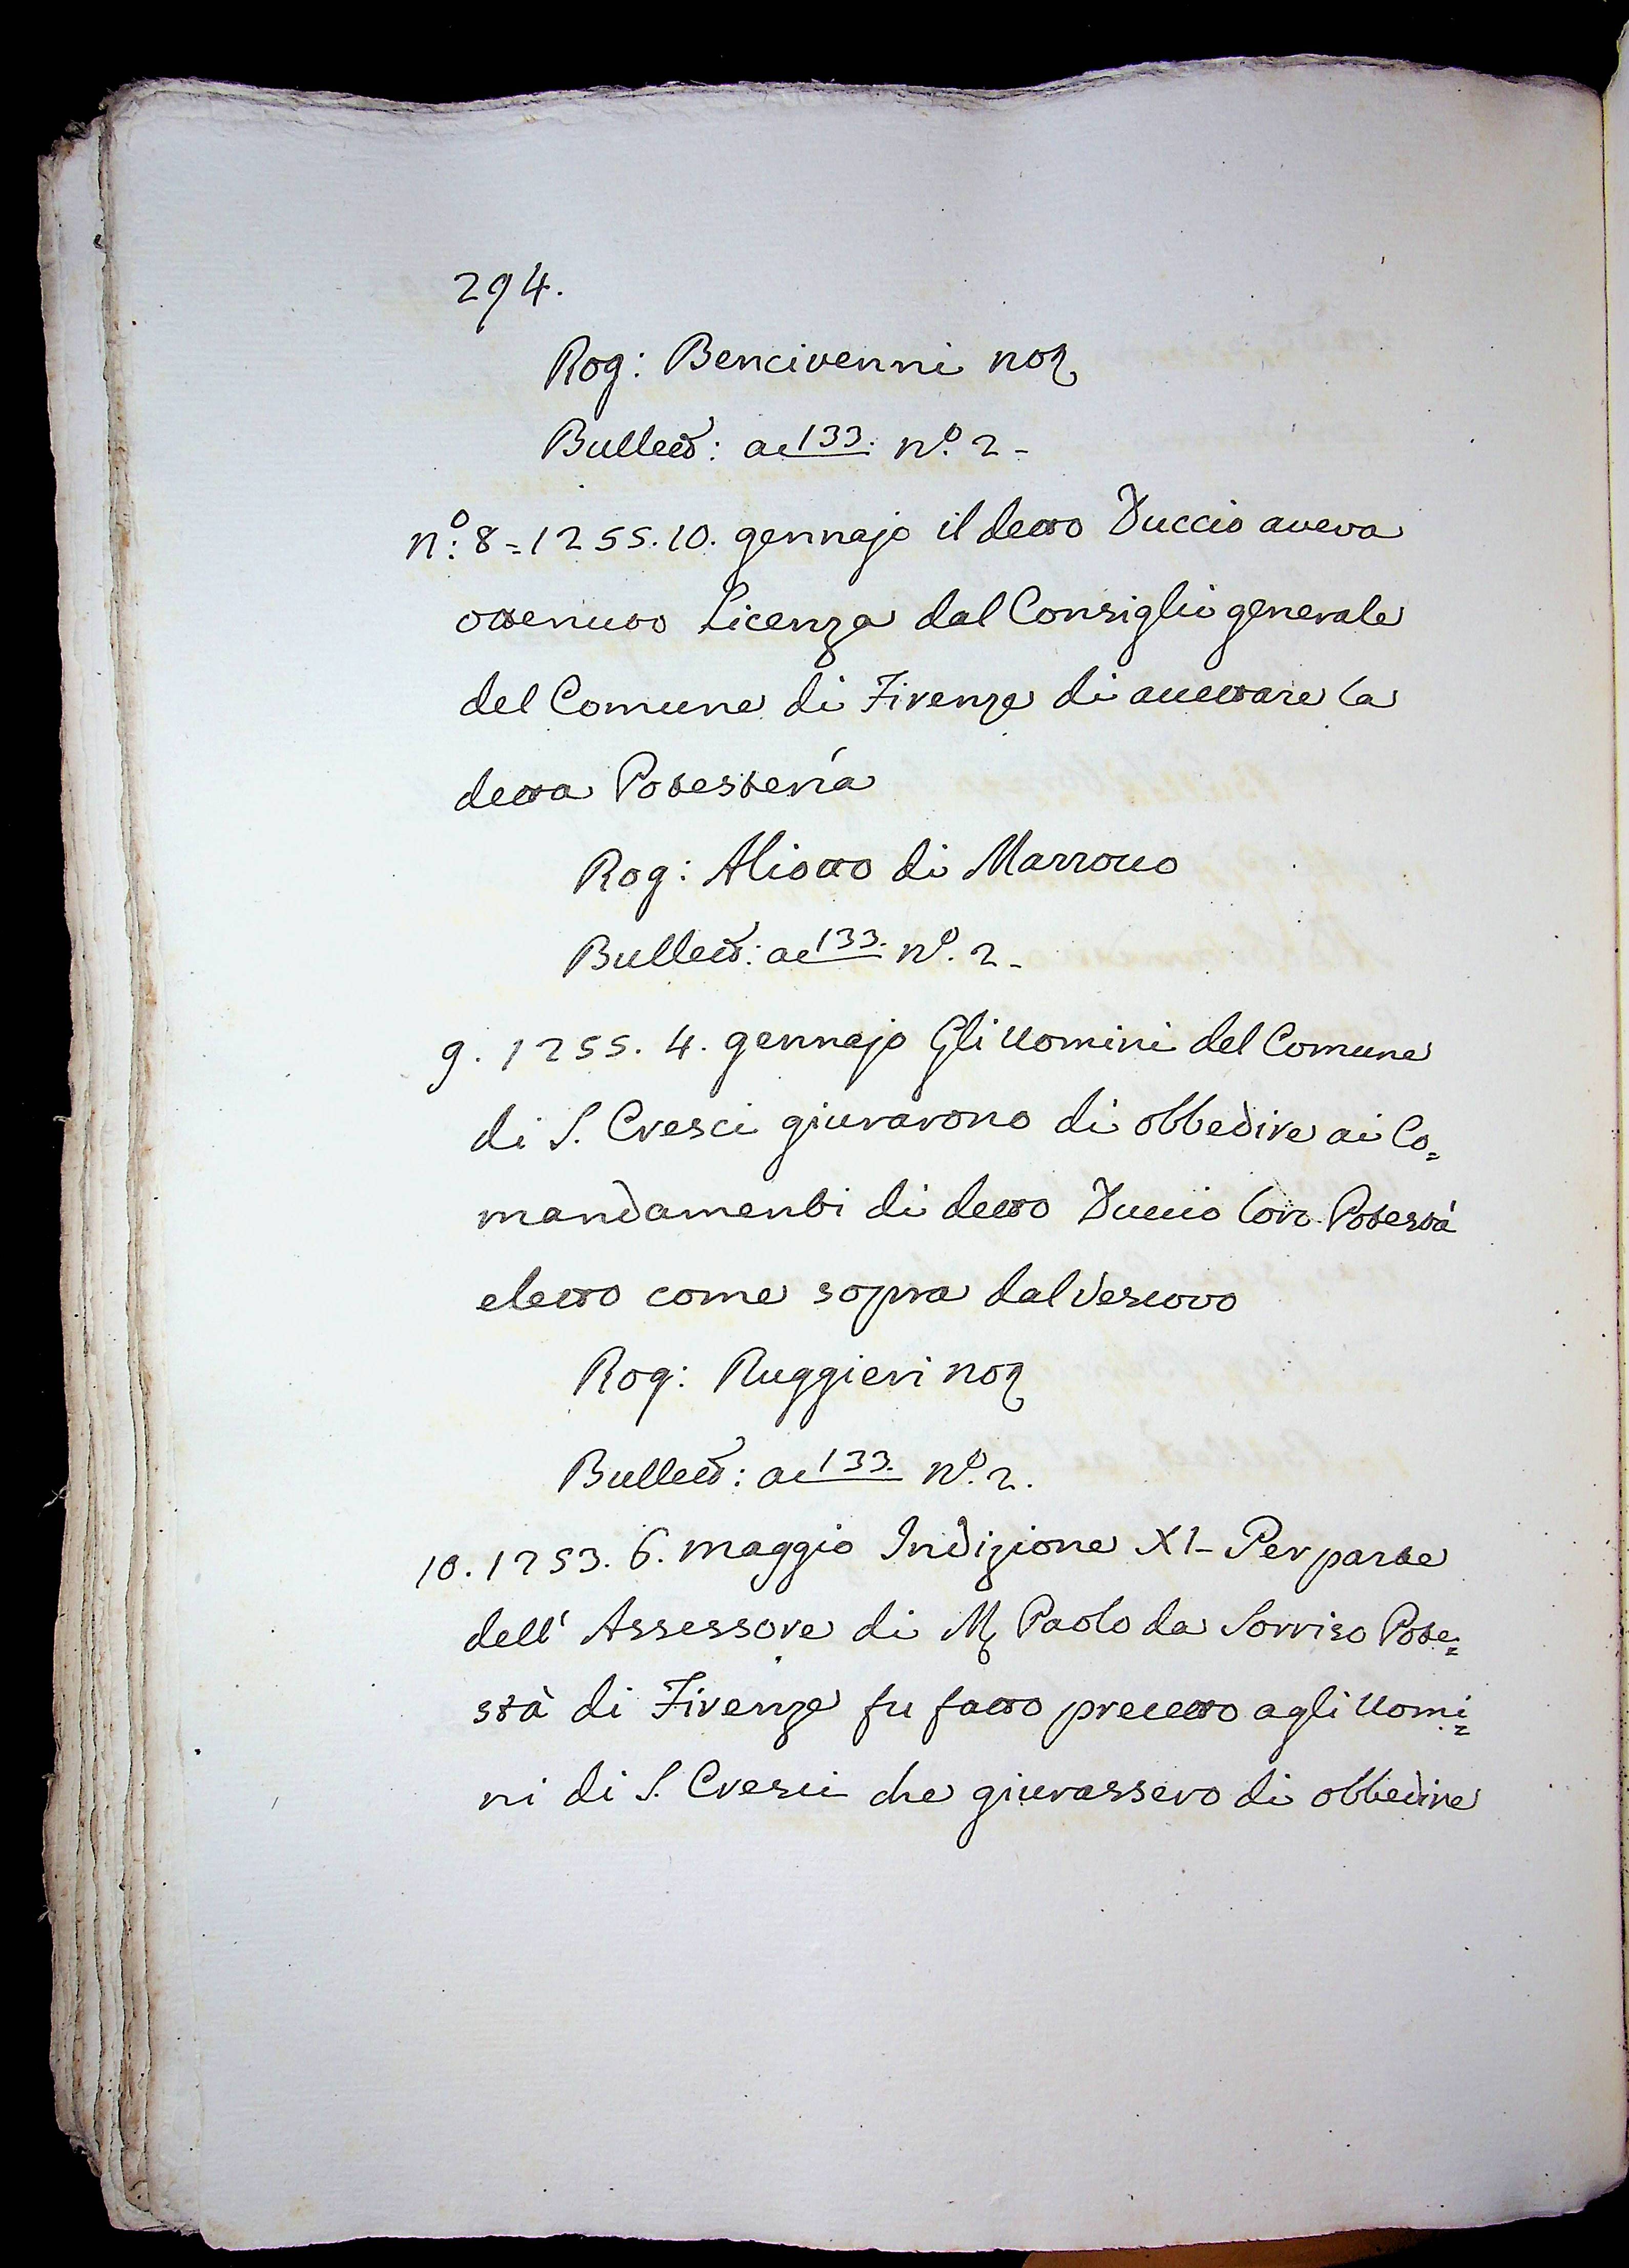 294.
Rog: Bencivenni not
Bullett: ac 133. n.º 2 -
n.º 8 = 1255. 10. gennajo il detto Duccio aveva
ottenuto Licenza dal Consiglio generale
del Comune di Firenze di accettare la
detta Potesteria
Rog: Aliotto di Marrocco
Bullett: ac 133. n.º 2 -
9. 1255. 4. gennajo Gli Uomini del Comune
di S. Cresci giurarono di obbedire ai Co=
mandamenti di detto Duccio loro Potestà
eletto come sopra dal Vescovo
Rog: Ruggieri not
Bullett: ac 133. n.º 2.
10. 1253. 6. maggio Indizione XI - Per parte
dell' Assessore di M Paolo da Sorriso Pote=
stà di Firenze fu fatto precetto agli Uomi=
ni di S. Cresci che giurassero di obbedire